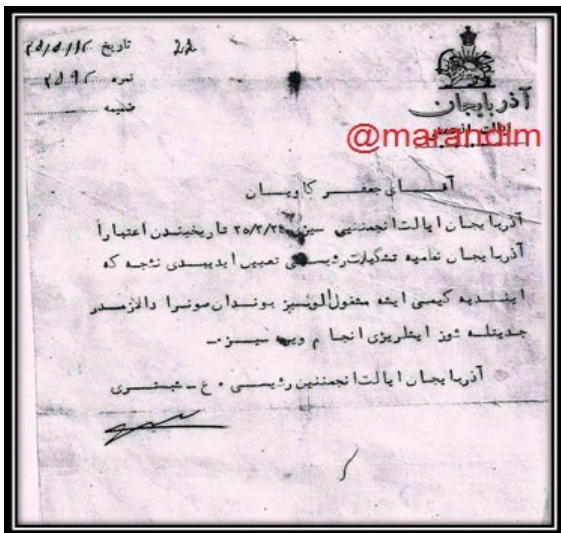 تاریخ ۲۵/۵/۱۲
22
نمره ۲۵۹۲
ضمیمه
آذربایجان
ایالت انجمنی
@marandlm
آقای جعفر کاویان
آذربایجان ایالت انجمننیی سیزی ۲۵/۳/۲۵ تاریخیندن اعتباراً
آذربایجان نظمیه تشکیلات رئیسی تعیین ایدیبدی نئجه که
ایندیه کیمی ایشه مشغول الوبسیز بوندان صونرا دا لازمدر
جدیتله ئوز ایشلریزی انجام ویره سیز.-
آذربایجان ایالت انجمننین رئیسی . ع - شبستری